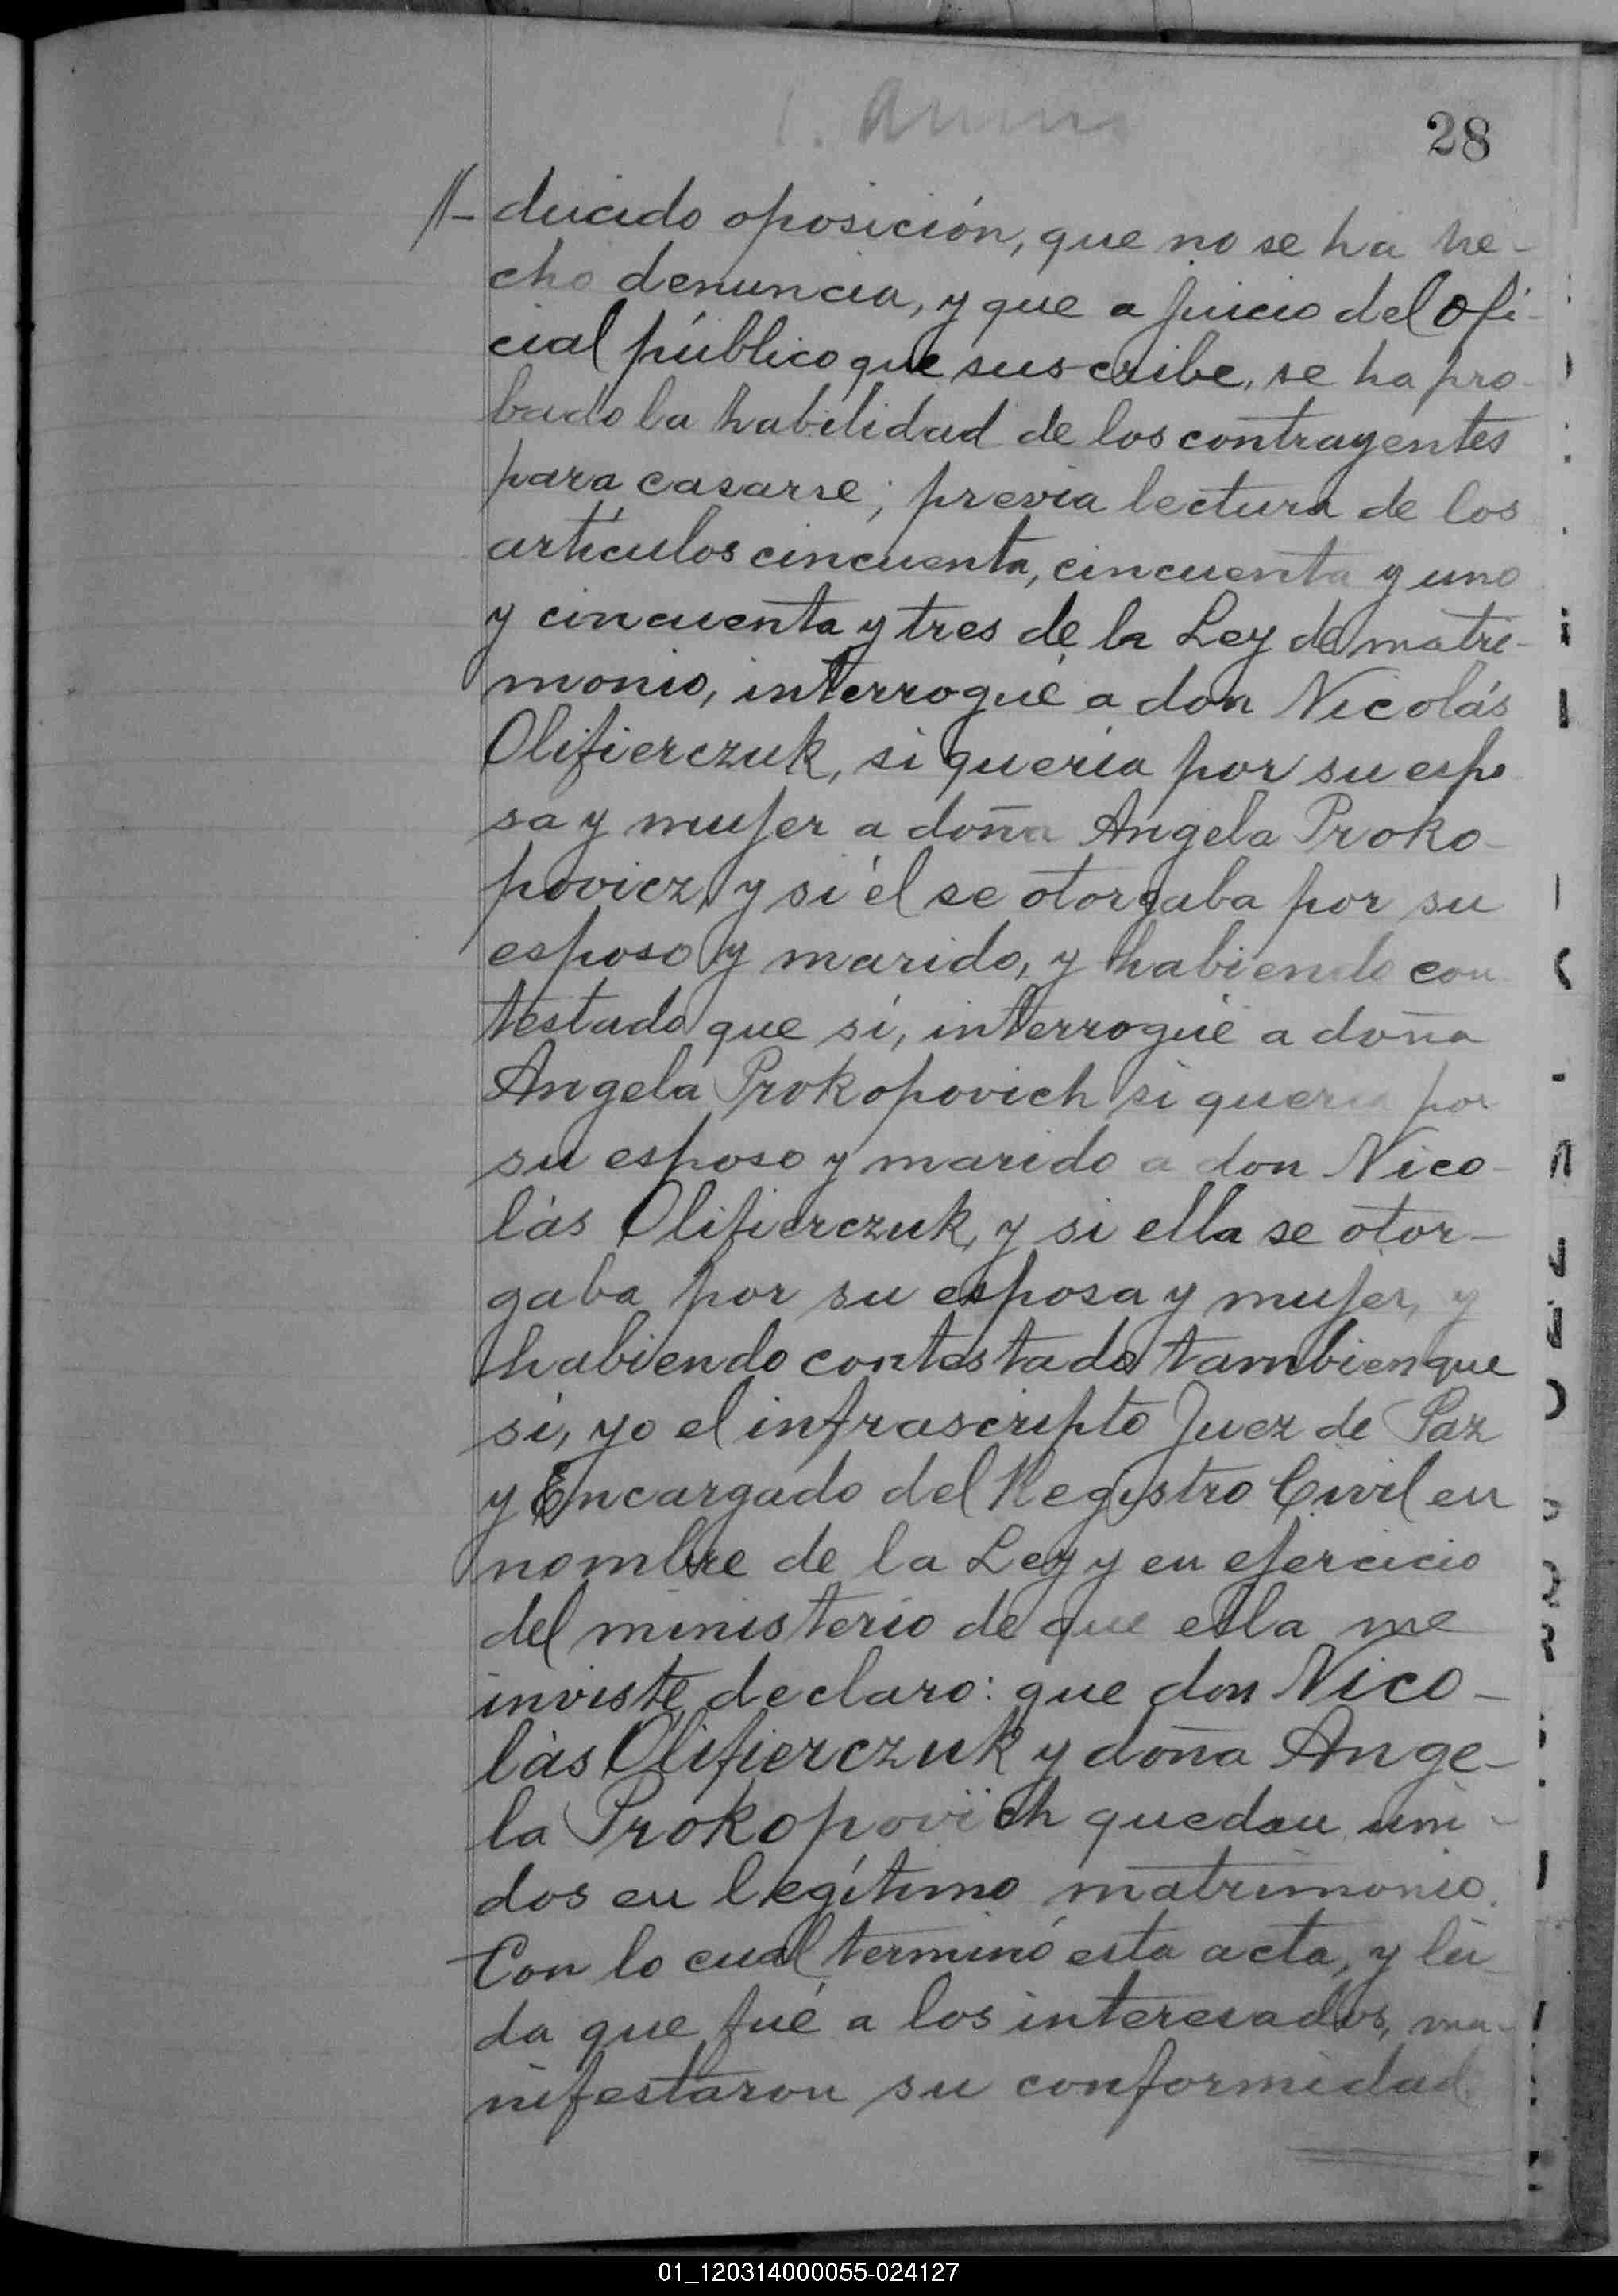 28
//- ducido oposición, que no se ha he-
cho denuncia, y que a juicio del Ofi-
cial público que suscribe, se ha pro-
bado la habilidad de los contrayentes
para casarse; previa lectura de los
artículos cincuenta, cincuenta y uno
y cincuenta y tres de la Ley de matri-
monio, interrogué a don Nicolás
Olifierczuk, si quería por su espo
sa y mujer a doña Angela Proko-
povicz, y si él se otorgaba por su
esposo y marido, y habiendo con
testado que sí, interrogué a doña
Angela Prokopovich si quería por
su esposo y marido a don Nico-
lás Olifierczuk, y si ella se otor-
gaba por su esposa y mujer, y
habiendo contestado tambien que
sí, yo el infrascripto Juez de Paz
y Encargado del Registro Civil en
nombre de la Ley y en ejercicio
del ministerio de que ella me
inviste, declaro: que don Nico-
lás Olifierczuk y doña Ange-
la Prokopovich quedan uni-
dos en legítimo matrimonio.
Con lo cual terminó esta acta, y leí-
da que fué a los interesados, ma-
nifestaron su conformidad
01_120314000055-024127